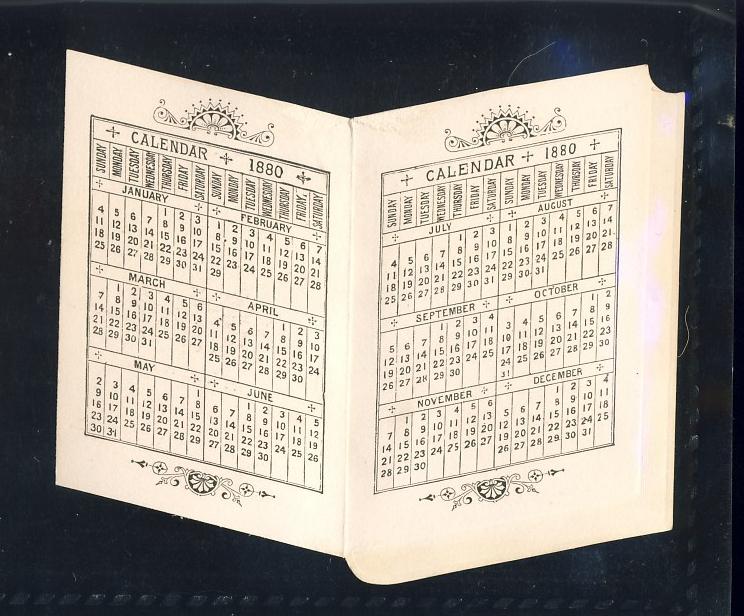 CALENDAR 1880
SUNDAY MONDAY TUESDAY WEDNESDAY THURSDAY FRIDAY SATURDAY SUNDAY MONDAY TUESDAY WEDNESDAY THURSDAY FRIDAY SATURDAY
JANUARY
1 2 3
4 5 6 7 8 9 10
11 12 13 14 15 16 17
18 19 20 21 22 23 24
25 26 27 28 29 30 31
FEBRUARY
1 2 3 4 5 6 7
8 9 10 11 12 13 14
15 16 17 18 19 20 21
22 23 24 25 26 27 28
29
MARCH
1 2 3 4 5 6
7 8 9 10 11 12 13
14 15 16 17 18 19 20
21 22 23 24 25 26 27
28 29 30 31
APRIL
1 2 3
4 5 6 7 8 9 10
11 12 13 14 15 16 17
18 19 20 21 22 23 24
25 26 27 28 29 30
MAY
1
2 3 4 5 6 7 8
9 10 11 12 13 14 15
16 17 18 19 20 21 22
23 24 25 26 27 28 29
30 31
JUNE
1 2 3 4 5
6 7 8 9 10 11 12
13 14 15 16 17 18 19
20 21 22 23 24 25 26
27 28 29 30
CALENDAR 1880
SUNDAY MONDAY TUESDAY WEDNESDAY THURSDAY FRIDAY SATURDAY SUNDAY MONDAY TUESDAY WEDNESDAY THURSDAY FRIDAY SATURDAY
JULY
1 2 3
4 5 6 7 8 9 10
11 12 13 14 15 16 17
18 19 20 21 22 23 24
25 26 27 28 29 30 31
AUGUST
1 2 3 4 5 6 7
8 9 10 11 12 13 14
15 16 17 18 19 20 21
22 23 24 25 26 27 28
29 30 31
SEPTEMBER
1 2 3 4
5 6 7 8 9 10 11
12 13 14 15 16 17 18
19 20 21 22 23 24 25
26 27 28 29 30
OCTOBER
1 2
3 4 5 6 7 8 9
10 11 12 13 14 15 16
17 18 19 20 21 22 23
24 25 26 27 28 29 30
31
NOVEMBER
1 2 3 4 5 6
7 8 9 10 11 12 13
14 15 16 17 18 19 20
21 22 23 24 25 26 27
28 29 30
DECEMBER
1 2 3 4
5 6 7 8 9 10 11
12 13 14 15 16 17 18
19 20 21 22 23 24 25
26 27 28 29 30 31